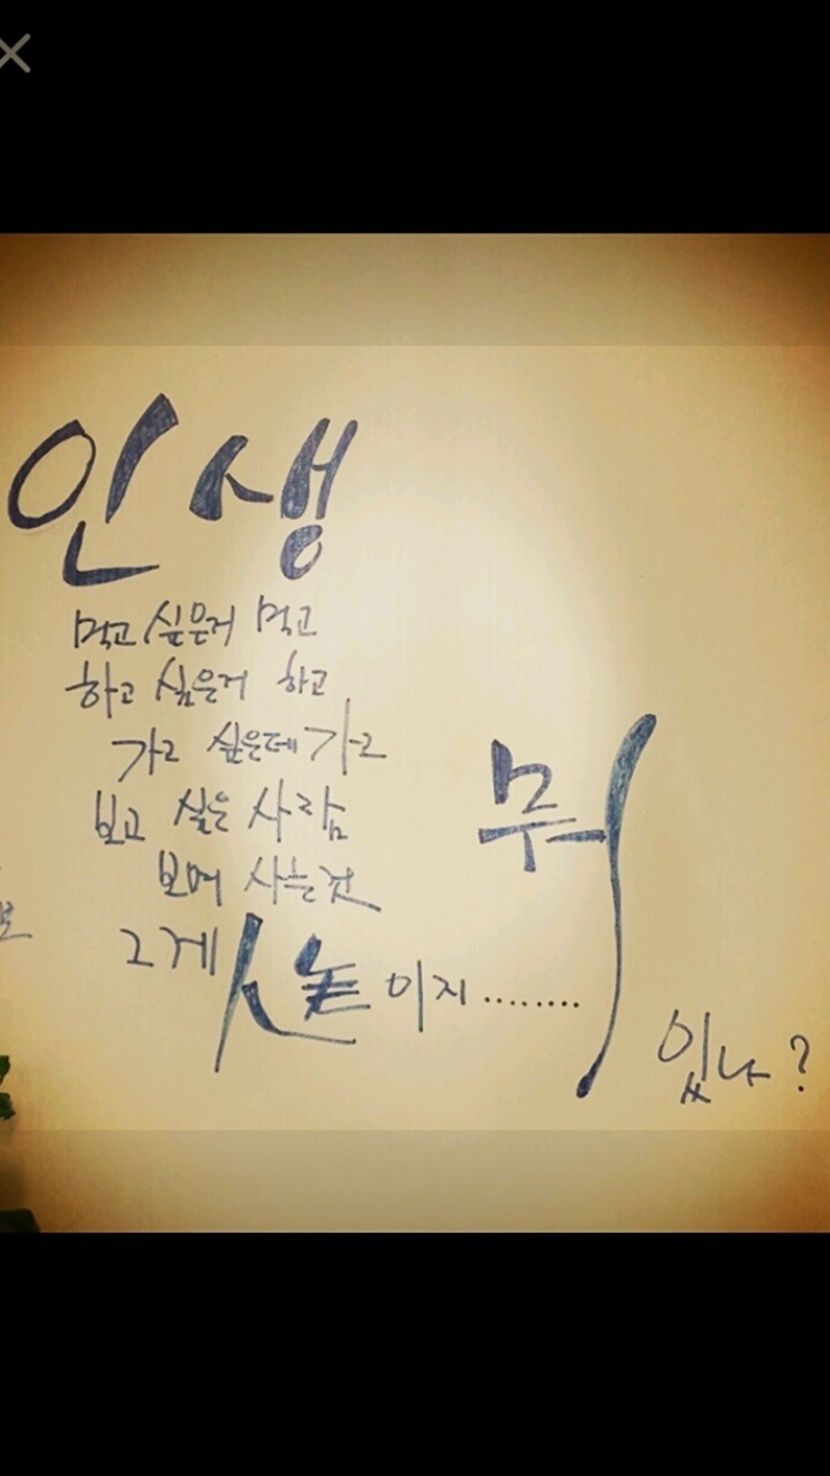 인생
먹고 싶은거 먹고
하고 싶은거 하고
가고 싶은데 가고
보고 싶은 사람
보며 사는것
그게 人生이지........
뭐
있나?